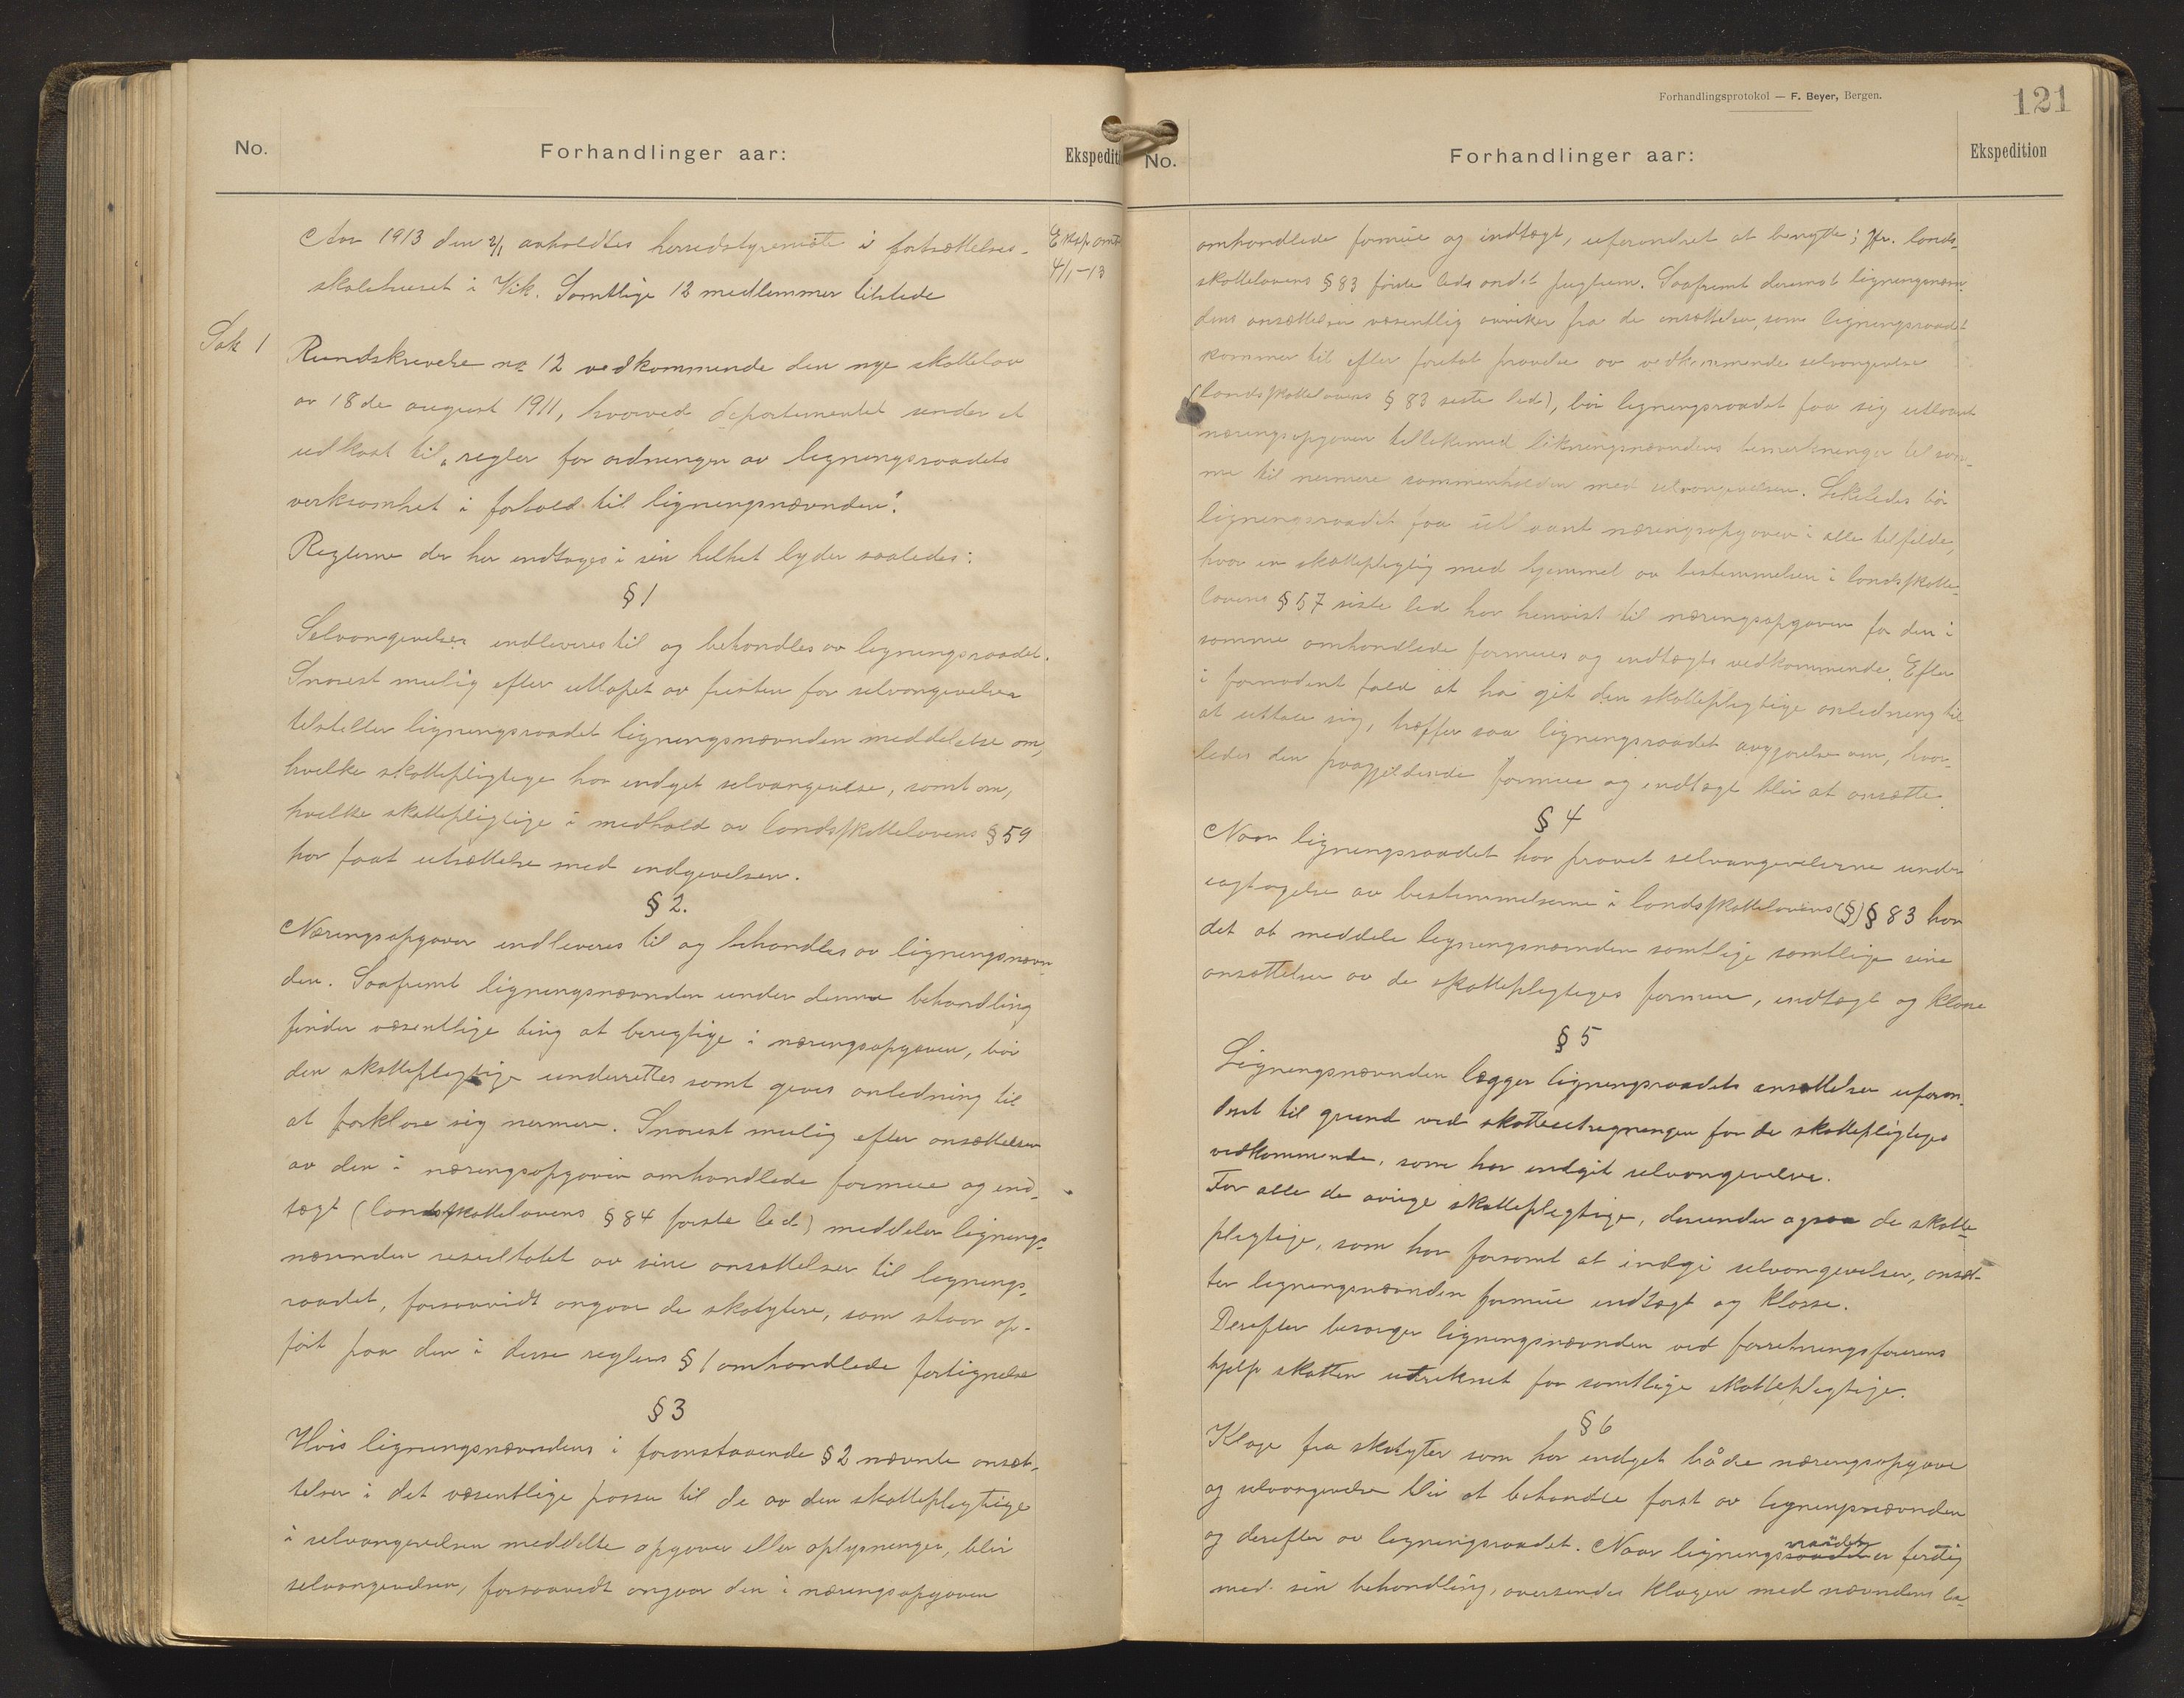 No.
Forhandlinger aar:
Ekspedit
Aar 1913 den 2/1 avholdtes herredstyremøte i fortsættelses-
skolehuset i Vik. Samtlige 12 medlemmer tilstede
Eksp amt
4/1-13
Sak 1
Rundskrivelse no 12 vedkommende den nye skattelov
av 18de august 1911, hvorved departementet sender et
udkast til „regler for ordningen av ligningsraadets
verksomhet i forhold til ligningsnævnden".
Reglerne der her indtages i sin helhet lyder saaledes:
§ 1
Selvangivelser indleveres til og behandles av ligningsraadet.
Snarest mulig efter utløpet av fristen for selvangivelsen
tilstiller ligningsraadet ligningsnævnden meddelelse om,
hvilke skattepligtige har indgit selvangivelse, samt om,
hvilke skattepligtige i medhold av landsskattelovens § 59
har faat utsættelse med indgivelsen.
§ 2.
Næringsopgaver indleveres til og behandles av ligningsnævn-
den. Saafremt ligningsnævnden under denne behandling
finder væsentlige ting at berigtige i næringsopgaven, bør
den skattepligtige underrettes samt gives anledning til
at forklare sig nermere. Snarest mulig efter ansættelsen
av den i næringsopgaven omhandlede formue og ind-
tægt (landsskattelovens § 84 første led) meddeler lignings-
nævnden resultatet av sine ansættelser til lignings-
raadet, forsaavidt angaar de skatytere, som staar op-
ført paa den i disse reglers § 1 omhandlede fortignelse
§ 3
Hvis ligningsnævndens i foranstaaende § 2 nævnte ansæt-
telser i det væsentlige passer til de av den skattepligtige
i selvangivelsen meddelte opgaver eller oplysninger, blir
selvangivelsen, forsaavidt angaar den i næringsopgaven
Forhandlingsprotokol — F. Beyer, Bergen.
121
No.
Forhandlinger aar:
Ekspedition
omhandlede formue og indtægt, uforandret at benytte; Jfr. lands-
skattelovens § 83 første leds andet punktum. Saafremt derimot ligningsnævn-
dens ansættelser væsentlig avviker fra de ansættelser, som ligningsraadet
kommer til efter foretat prøvelse av vedkommende selvangivelse
(landsskattelovens § 83 siste led), bør ligningsraadet faa sig utlaant
næringsopgaven tillikemed likningsnævndens bemerkninger til sam-
me til nermere sammenholden med selvangivelsen. Likeledes bør
ligningsraadet faa utlaant næringsopgaven i alle tilfelde,
hvor en skattepligtig med hjemmel av bestemmelsen i landsskatte-
lovens § 57 siste led har henvist til næringsopgaven for den i
samme omhandlede formues og indtægts vedkommende. Efter
i fornødent fald at ha git den skattepligtige anledning til
at uttale sig, træffer saa ligningsraadet avgjørelse om, hvor-
ledes den paagjeldende formue og indtægt blir at ansætte.
§ 4
Naar ligningsraadet har prøvet selvangivelserne under
iagtagelse av bestemmelserne i landsskattelovens (§) § 83 har
det at meddele ligningsnævnden samtlige samtlige sine
ansættelser av de skattepligtiges formue, indtægt og klasse
§ 5
Ligningsnævnden lægger ligningsraadets ansættelser uforan-
dret til grund ved skatteutregningen for de skattepligtiges
vedkommende, som har indgit selvangivelse.
For alle de øvrige skattepligtige, derunder ogsaa de skatte-
pligtige, som har forsømt at indgi selvangivelser, ansæt-
ter ligningsnævnden formue indtægt og klasse.
Derefter besørger ligningsnævnden ved forretningsførerens
hjelp skatten utreknet for samtlige skattepligtige.
§ 6
Klage fra skatyter som har indgit både næringsopgave
og selvangivelse blir at behandle først av ligningsnævnden
og derefter av ligningsraadet. Naar ligningsraadet er ferdig
med sin behandling, oversendes klagen med nævndens be-